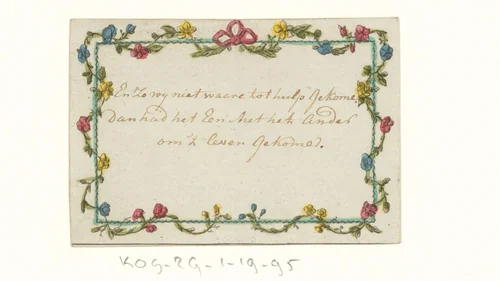 En Zo wy niet waare tot hulp Gekome,
Dan had het Een Met het Ander
om 't Leven Gekomed.
KOG-ZG-1-19-95